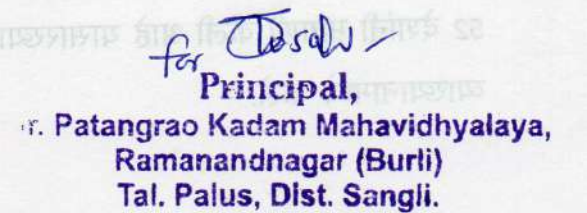 for Desai
Principal,
r. Patangrao Kadam Mahavidhyalaya,
Ramanandnagar (Burli)
Tal. Palus, Dist. Sangli.